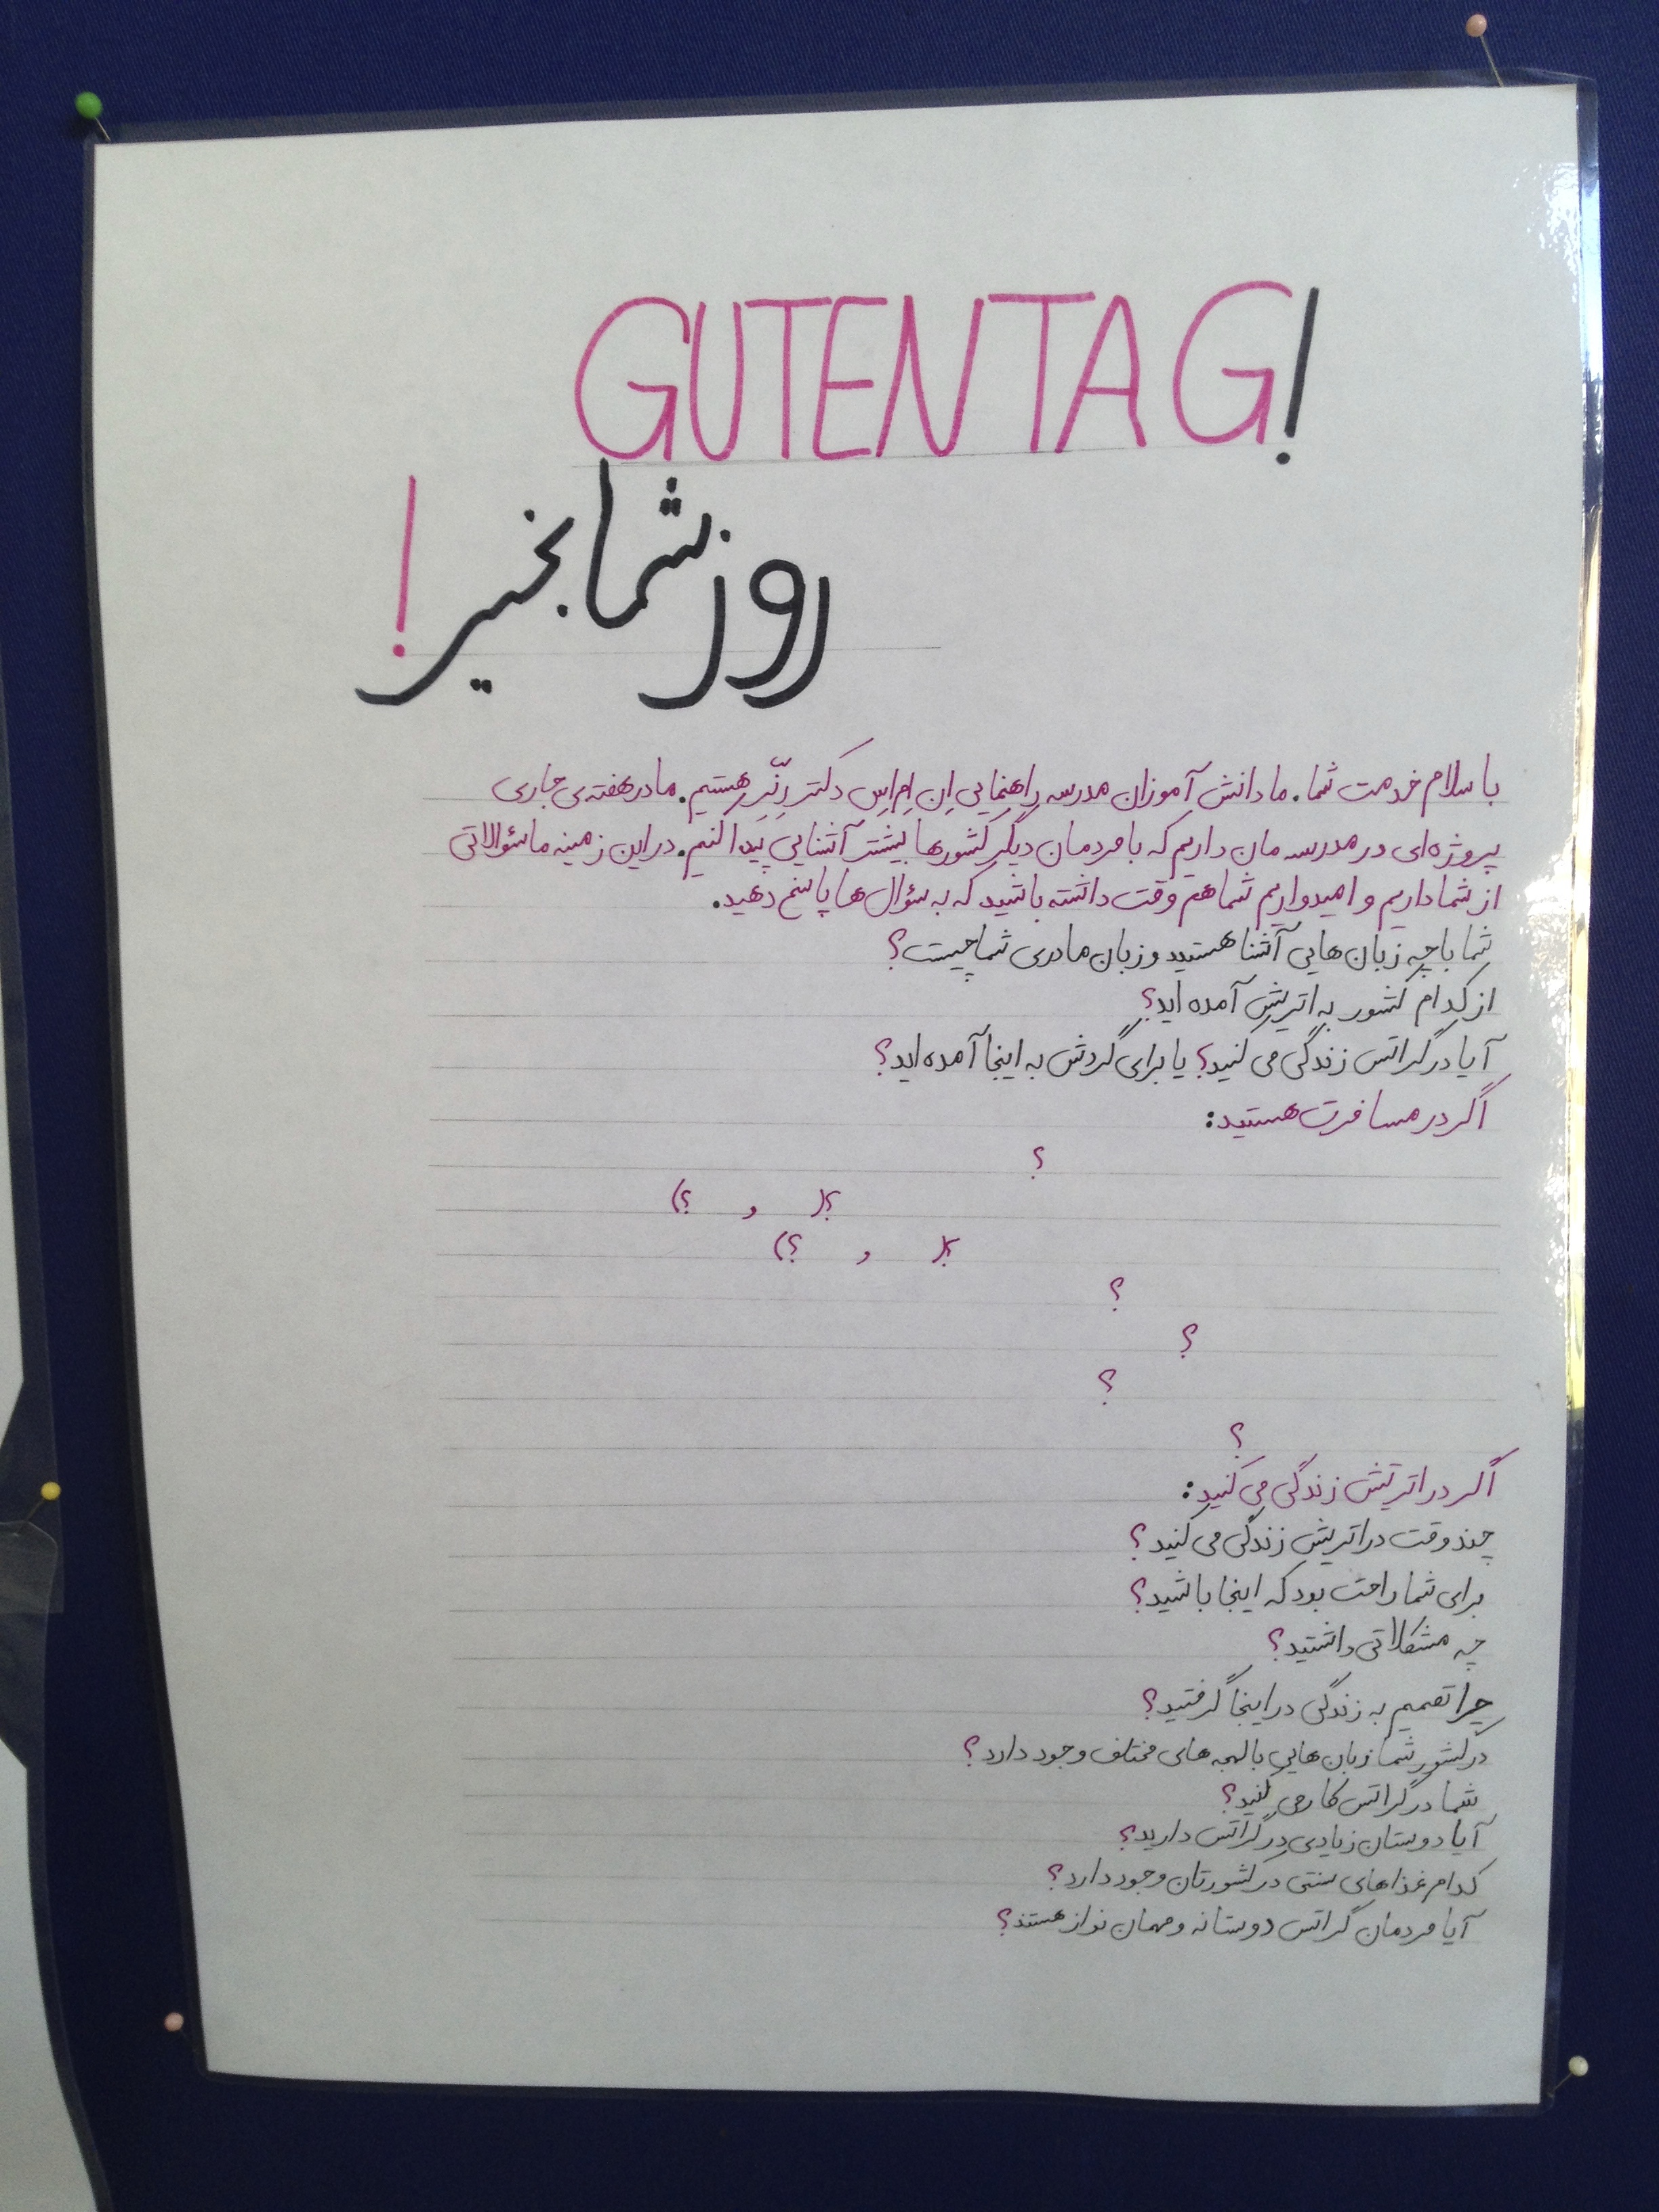 GUTEN TAG!
روز شما بخیر!
با سلام خدمت شما. ما دانش آموزان مدرسه راهنمایی اِن اِم اِس دکتر رِنِّر هستیم. ما در هفته‌ی جاری
پروژه‌ای در مدرسه مان داریم که با مردمان دیگر کشورها بیشتر آشنایی پیدا کنیم. در این زمینه ما سؤالاتی
از شما داریم و امیدواریم شما هم وقت داشته باشید که به سؤال ها پاسخ دهید.
شما با چه زبان هایی آشنا هستید و زبان مادری شما چیست؟
از کدام کشور به اتریش آمده اید؟
آیا در گراتس زندگی می کنید؟ یا برای گردش به اینجا آمده اید؟
اگر در مسافرت هستید:
؟
؟( و ؟)
؟( و ؟)
؟
؟
؟
؟
اگر در اتریش زندگی می کنید:
چند وقت در اتریش زندگی می کنید؟
برای شما راحت بود که اینجا باشید؟
چه مشکلاتی داشتید؟
چرا تصمیم به زندگی در اینجا گرفتید؟
در کشور شما زبان هایی با لهجه های مختلف وجود دارد؟
شما در گراتس کار می کنید؟
آیا دوستان زیادی در گراتس دارید؟
کدام غذاهای سنتی در کشورتان وجود دارد؟
آیا مردمان گراتس دوستانه و مهمان نواز هستند؟